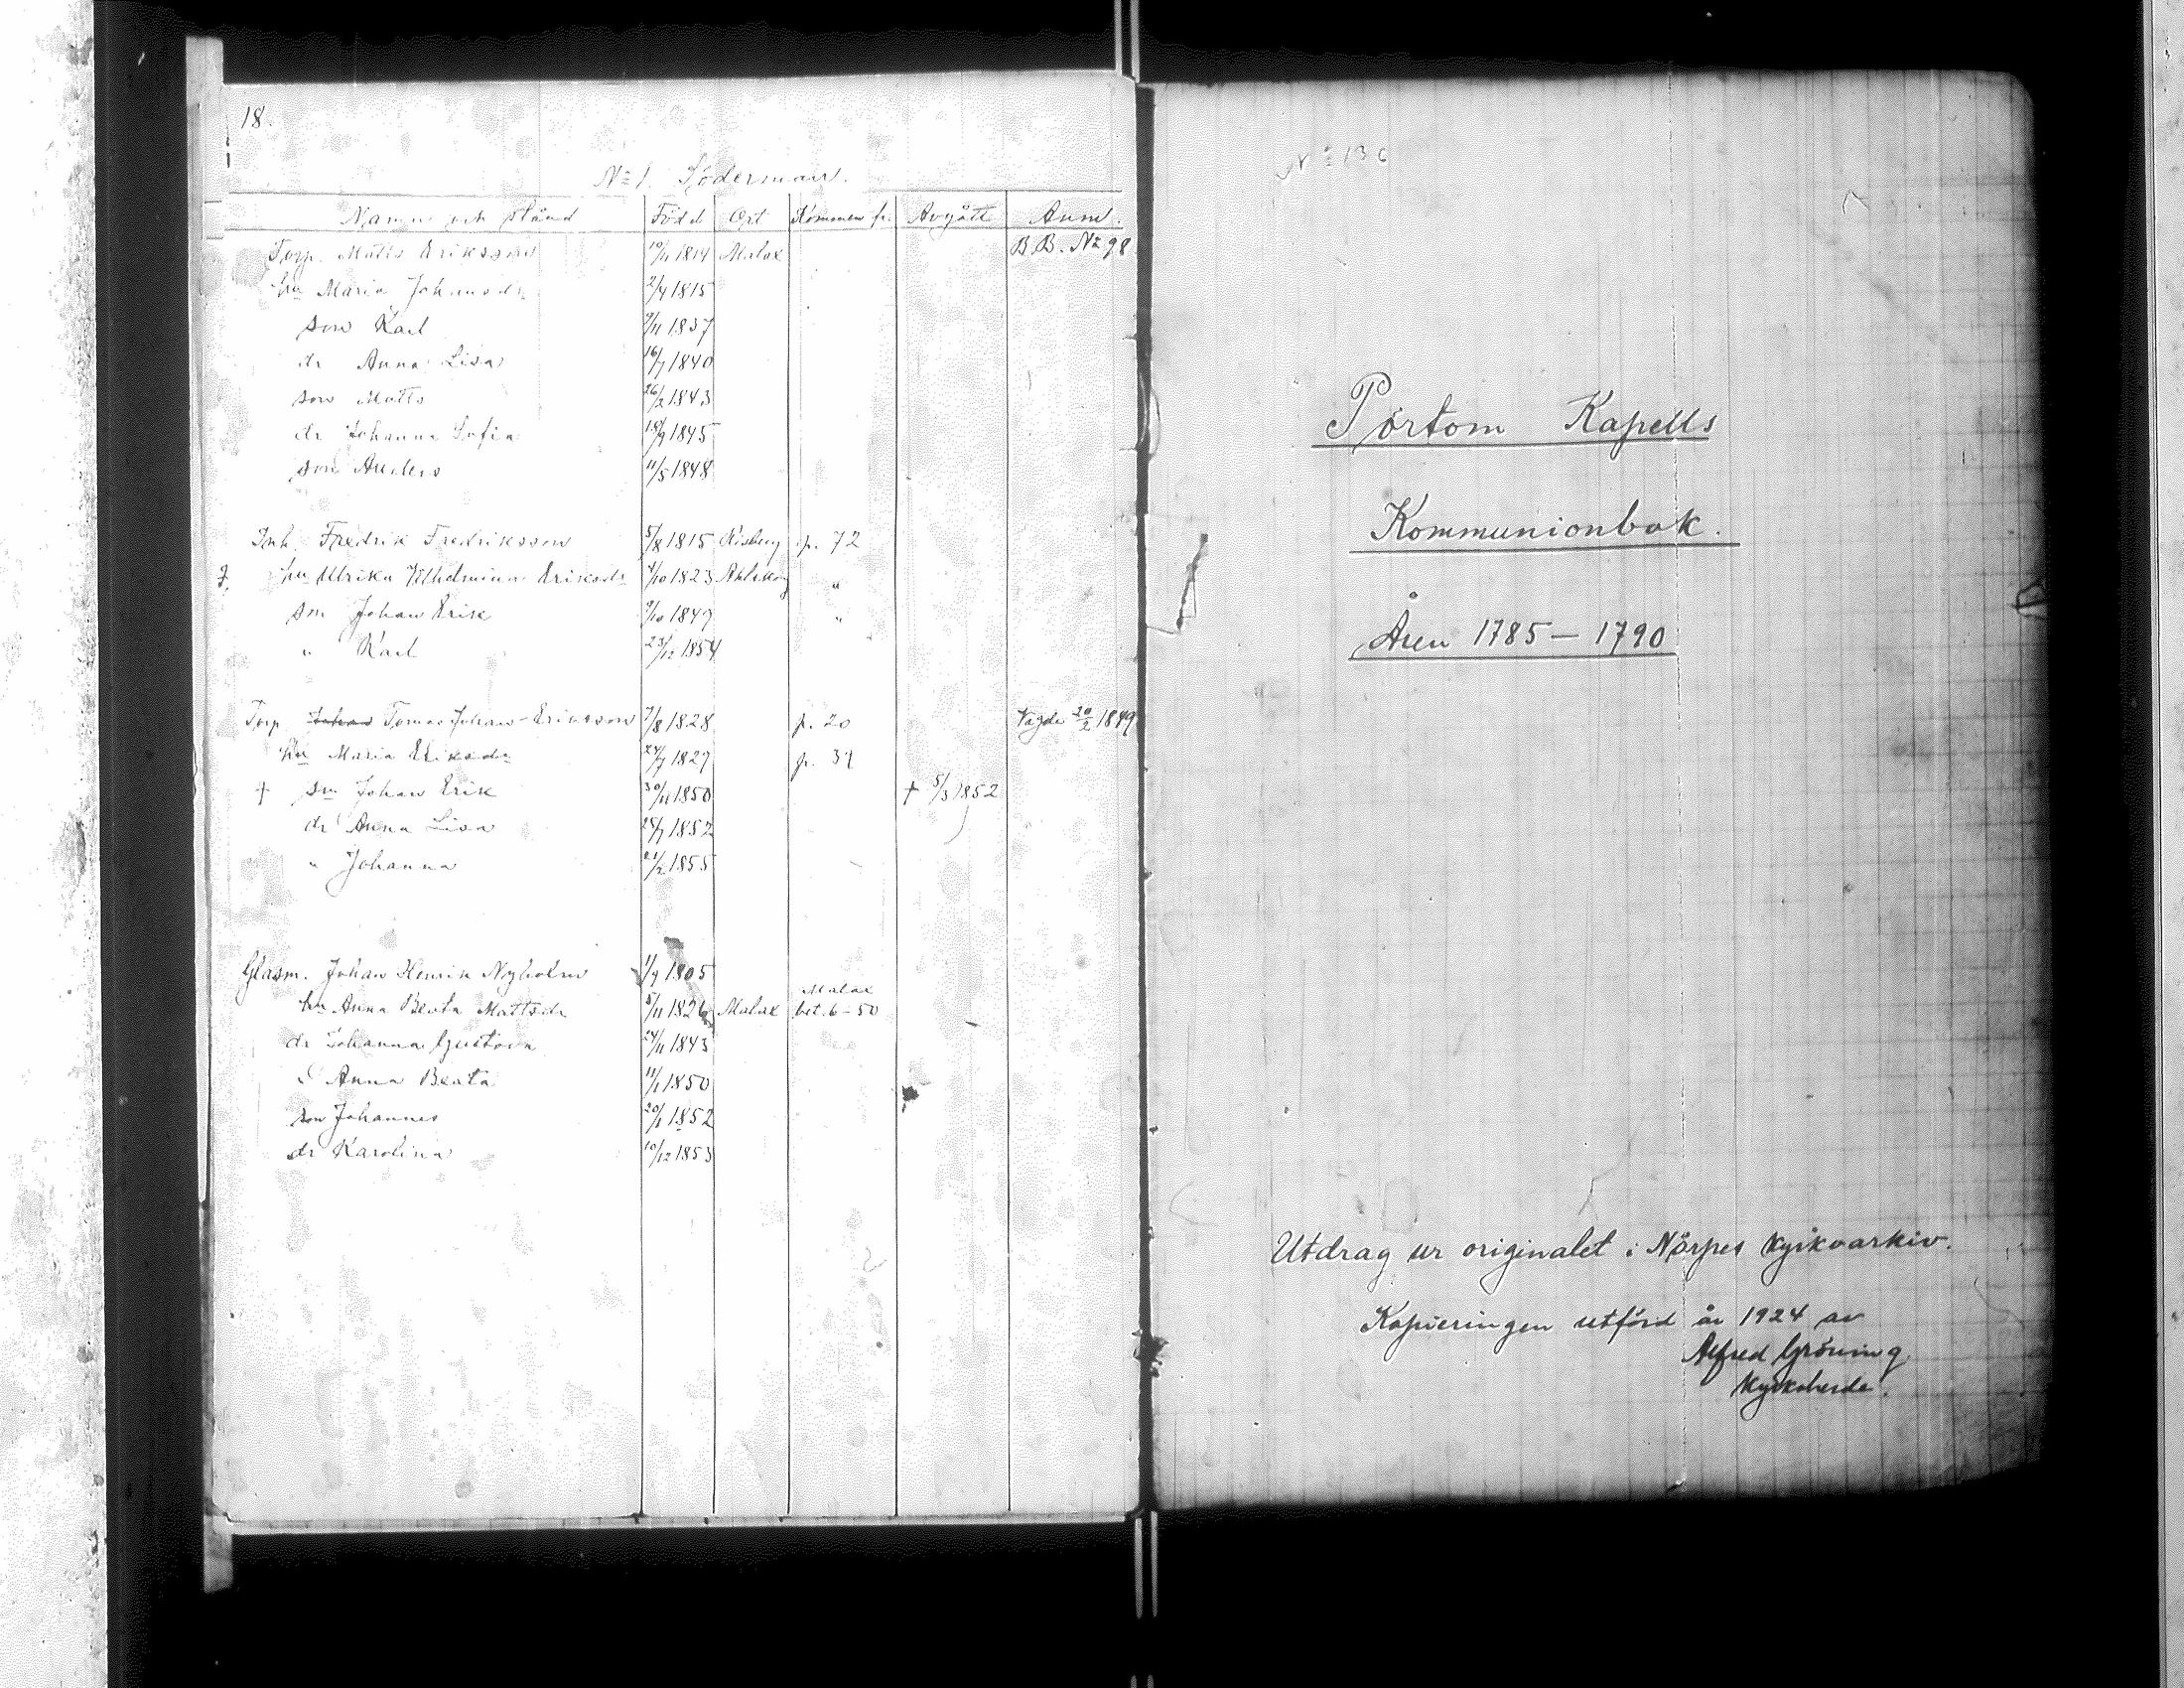 18.
No 1. Söderman.
Namn och stånd Född Ort Kommen fr. Avgått Anm.
Torp. Matts Eriksson 10/11 1814 Malax B.B. No 98
hu Maria Johansdr 2/4 1815
son Karl 9/11 1837
dr Anna Lisa 16/7 1840
son Matts 26/2 1843
dr Johanna Sofia 18/9 1845
son Anders 11/5 1848
Inh. Fredrik Fredriksson 5/8 1815 p. 72
hu Ulrika Vilhelmina Eriksdr 4/10 1823 "
son Johan Erik 9/10 1849 "
" Karl 23/12 1854
Torp Johan Tomas Johan-Eriksson 7/8 1828 p. 20 Vigde 20/2 1849
hu Maria Eriksdr 24/7 1827 p. 34
+ son Johan Erik 30/11 1850 † 5/3 1852
dr Anna Lisa 25/7 1852
" Johanna 21/2 1855
Glasm. Johan Henrik Nyholm 1/9 1805
hu Anna Beata Mattsdr 5/11 1826 Malax Malax bet. 6-50
dr Johanna Gustava 24/11 1843
d Anna Beata 11/1 1850
son Johannes 20/1 1852
dr Karolina 10/12 1853
No 136
Pörtom Kapells
Kommunionbok.
Åren 1785 — 1790
Utdrag ur originalet i Närpes kyrkoarkiv.
Kopieringen utförd år 1924 av
Alfred Gröning
Kyrkoherde.